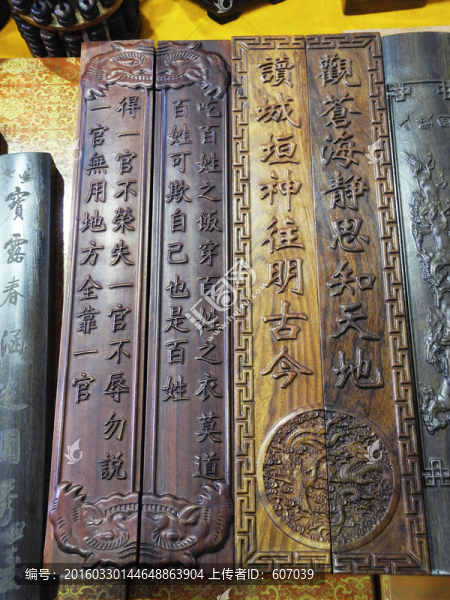 觀蒼海靜思知天地
讀城垣神往明古今
吃百姓之飯穿百姓之衣莫道
百姓可欺自己也是百姓
得一官不榮失一官不辱勿説
一官無用地方全靠一官
寶露春涵
编号：20160330144648863904 上传者ID：607039